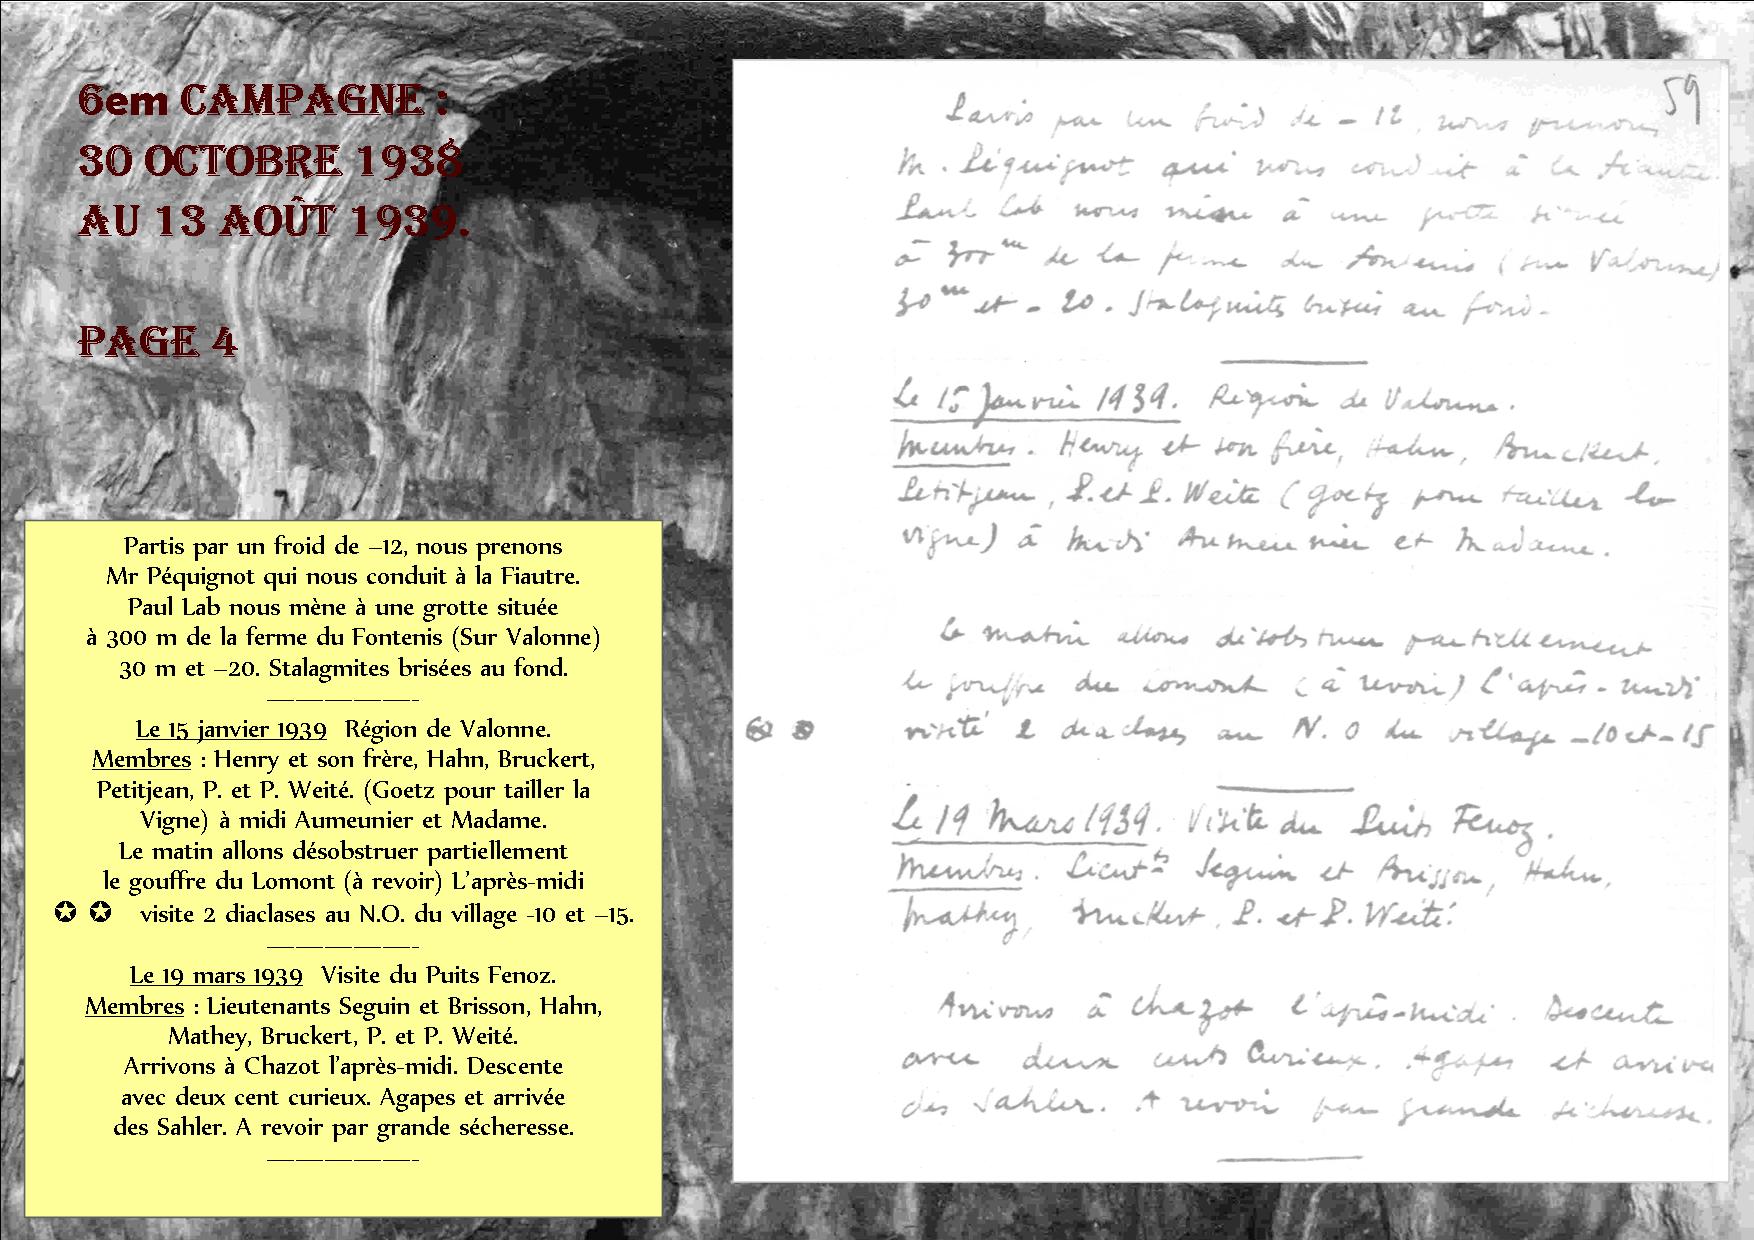 6em CAMPAGNE :
30 OCTOBRE 1938
AU 13 AOÛT 1939.
PAGE 4
Partis par un froid de –12, nous prenons
Mr Péquignot qui nous conduit à la Fiautre.
Paul Lab nous mène à une grotte située
à 300 m de la ferme du Fontenis (Sur Valonne)
30 m et –20. Stalagmites brisées au fond.
Le 15 janvier 1939 Région de Valonne.
Membres : Henry et son frère, Hahn, Bruckert,
Petitjean, P. et P. Weité. (Goetz pour tailler la
Vigne) à midi Aumeunier et Madame.
Le matin allons désobstruer partiellement
le gouffre du Lomont (à revoir) L’après-midi
✪ ✪ visite 2 diaclases au N.O. du village -10 et –15.
Le 19 mars 1939 Visite du Puits Fenoz.
Membres : Lieutenants Seguin et Brisson, Hahn,
Mathey, Bruckert, P. et P. Weité.
Arrivons à Chazot l’après-midi. Descente
avec deux cent curieux. Agapes et arrivée
des Sahler. A revoir par grande sécheresse.
59
Partis par un froid de – 12, nous prenons
M. Péquignot qui nous conduit à la Fiautre.
Paul Lab nous mène à une grotte située
à 300 m de la ferme du Fontenis (sur Valonne)
30 m et – 20. Stalagmites brisées au fond.
Le 15 Janvier 1939. Région de Valonne.
Membres. Henry et son frère, Hahn, Bruckert,
Petitjean, P. et P. Weité (Goetz pour tailler la
vigne) à midi Aumeunier et Madame.
Le matin allons désobstruer partiellement
le gouffre du Lomont (à revoir) L'après-midi
visité 2 diaclases au N.O du village –10 et –15
Le 19 Mars 1939. Visite du Puits Fenoz.
Membres. Lieut ts Seguin et Brisson, Hahn,
Mathey, Bruckert, P. et P. Weité.
Arrivons à Chazot l'après-midi. Descente
avec deux cents Curieux. Agapes et arrivée
des Sahler. A revoir par grande sécheresse.